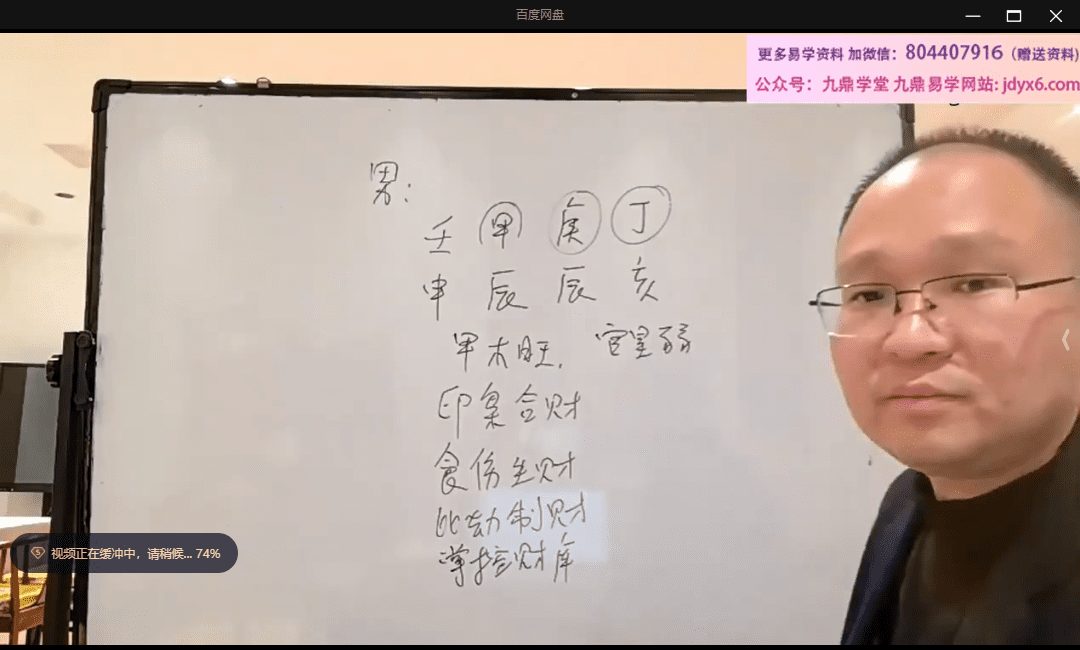 百度网盘
更多易学资料 加微信：804407916（赠送资料)
公众号：九鼎学堂 九鼎易学网站: jdyx6.com
男：
壬 甲 庚 丁
申 辰 辰 亥
甲木旺， 官星弱
印枭合财
食伤生财
比劫制财
掌控财库
视频正在缓冲中，请稍候... 74%